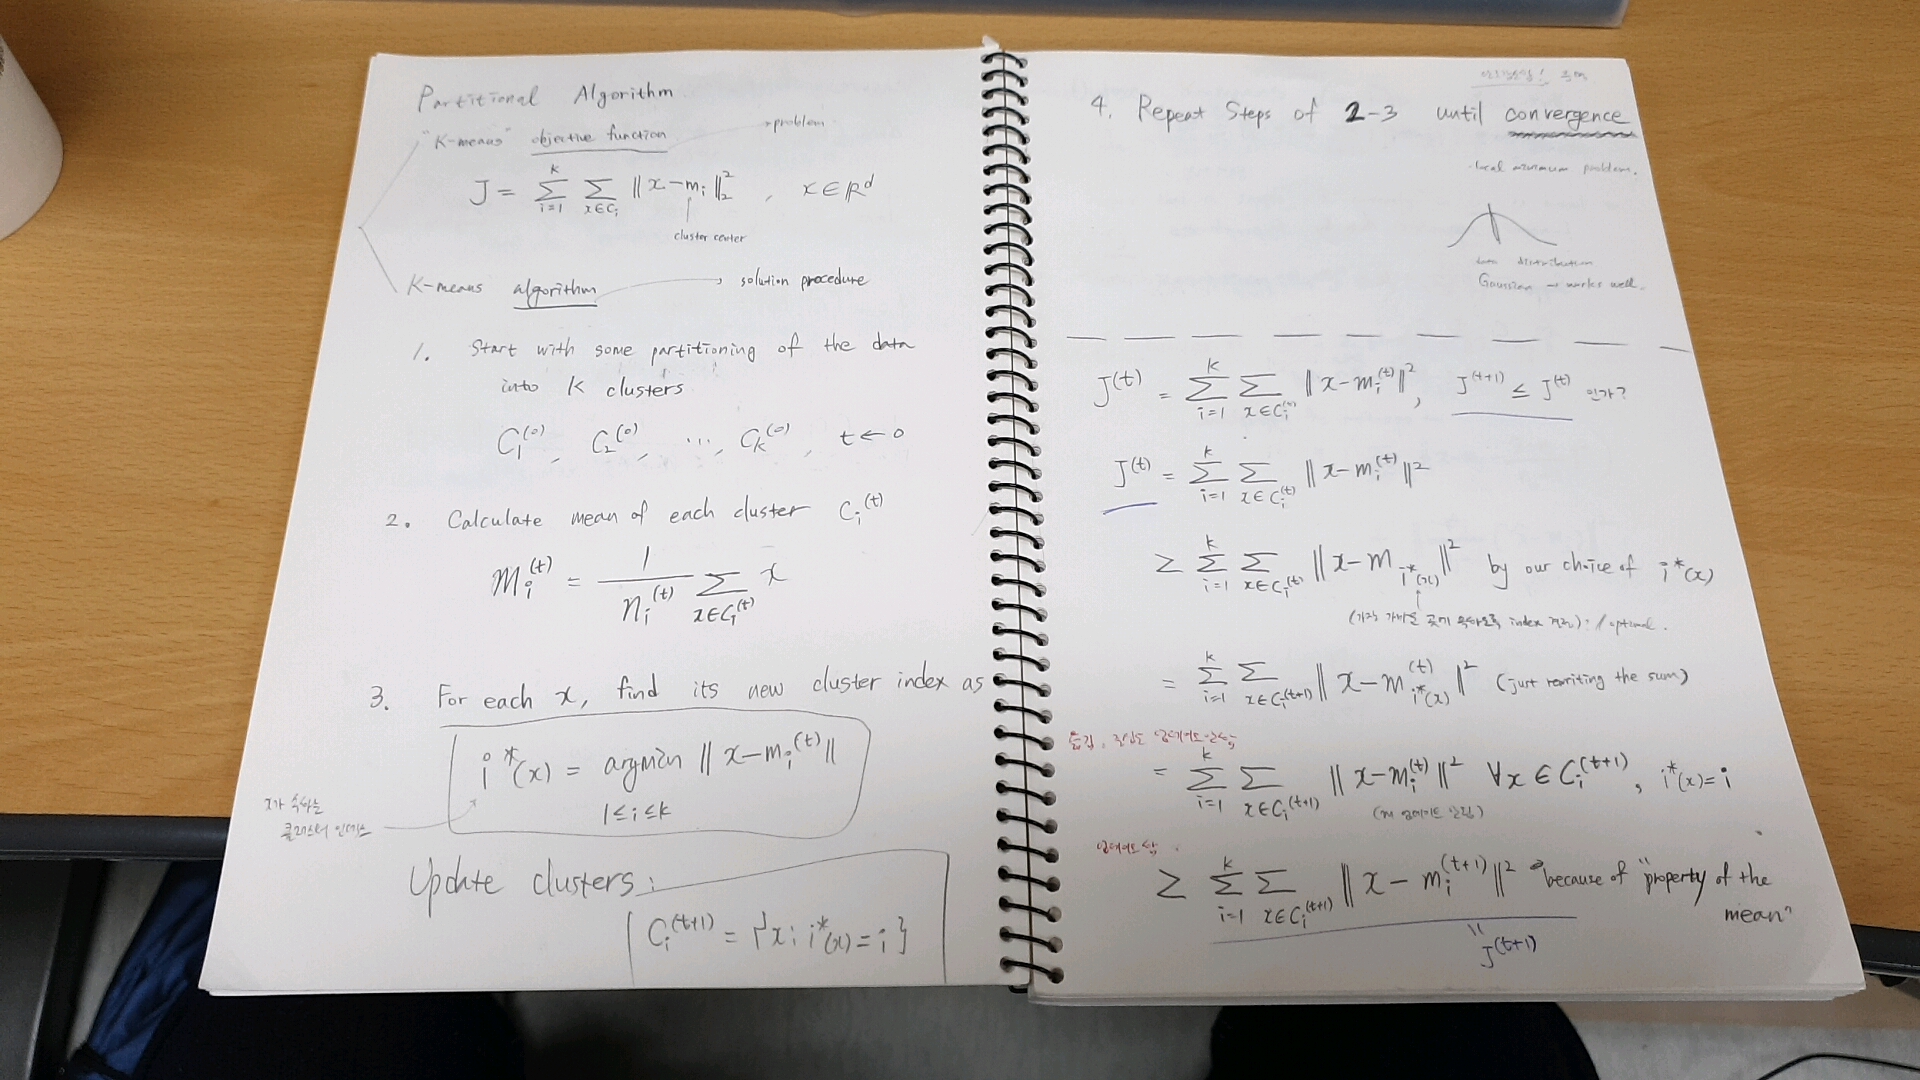 Partitional Algorithm
"K-means" objective function → problem
J = Σ_{i=1}^{k} Σ_{x∈C_i} ‖x-m_i‖_2^2 , x∈ℝ^d
cluster center
K-means algorithm → solution procedure
1. Start with some partitioning of the data
into K clusters
C_1^{(0)}, C_2^{(0)}, ..., C_k^{(0)}, t←0
2. Calculate mean of each cluster C_i^{(t)}
m_i^{(t)} = 1/n_i^{(t)} Σ_{x∈C_i^{(t)}} x
3. For each x, find its new cluster index as
i*(x) = argmin ‖x-m_i^{(t)}‖
1≤i≤k
x가 속하는
클러스터 인덱스
Update clusters:
C_i^{(t+1)} = {x; i*(x)=i}
4. Repeat Steps of 2-3 until convergence
local minimum problem.
data distribution
Gaussian → works well.
J(t) = Σ_{i=1}^{k} Σ_{x∈C_i^{(t)}} ‖x-m_i^{(t)}‖^2, J^{(t+1)} ≤ J^{(t)} 인가?
J^{(t)} = Σ_{i=1}^{k} Σ_{x∈C_i^{(t)}} ‖x-m_i^{(t)}‖^2
≥ Σ_{i=1}^{k} Σ_{x∈C_i^{(t)}} ‖x-m_{i*(x)}‖^2 by our choice of i*(x)
(가장 가까운 곳에 속하도록 index) optimal.
= Σ_{i=1}^{k} Σ_{x∈C_i^{(t+1)}} ‖x-m_{i*(x)}^{(t)}‖^2 (just rewriting the sum)
= Σ_{i=1}^{k} Σ_{x∈C_i^{(t+1)}} ‖x-m_i^{(t)}‖^2 ∀x∈C_i^{(t+1)}, i*(x)=i
(m 업데이트 안함)
업데이트
≥ Σ_{i=1}^{k} Σ_{x∈C_i^{(t+1)}} ‖x-m_i^{(t+1)}‖^2 because of "property of the
mean"
" J^{(t+1)}